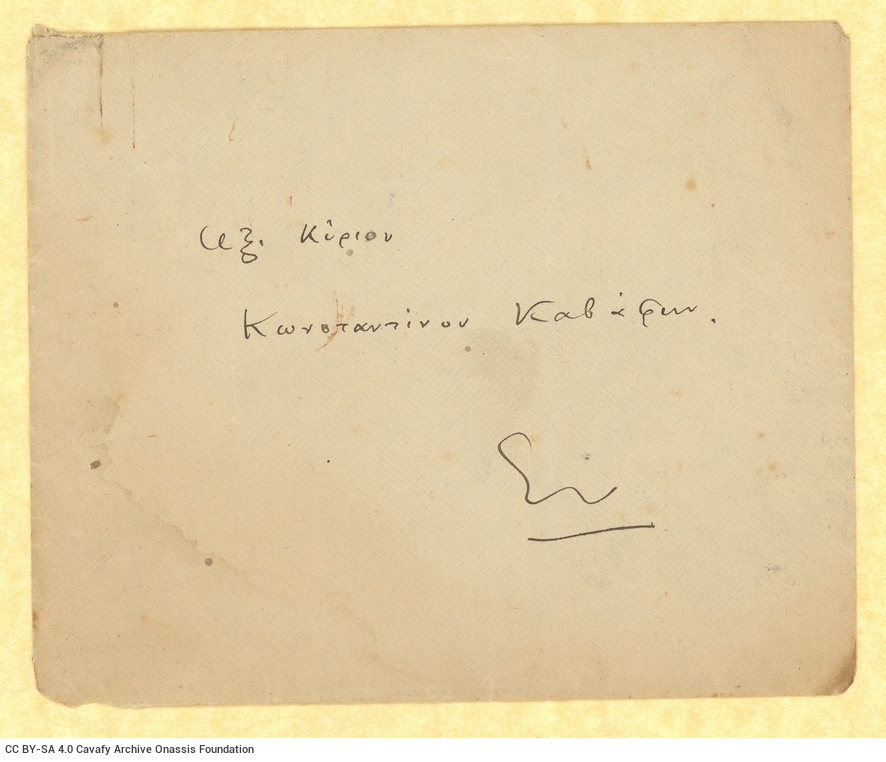 Αξ. Κύριον
Κωνσταντίνον Καβάφην.
Εν
CC BY-SA 4.0 Cavafy Archive Onassis Foundation